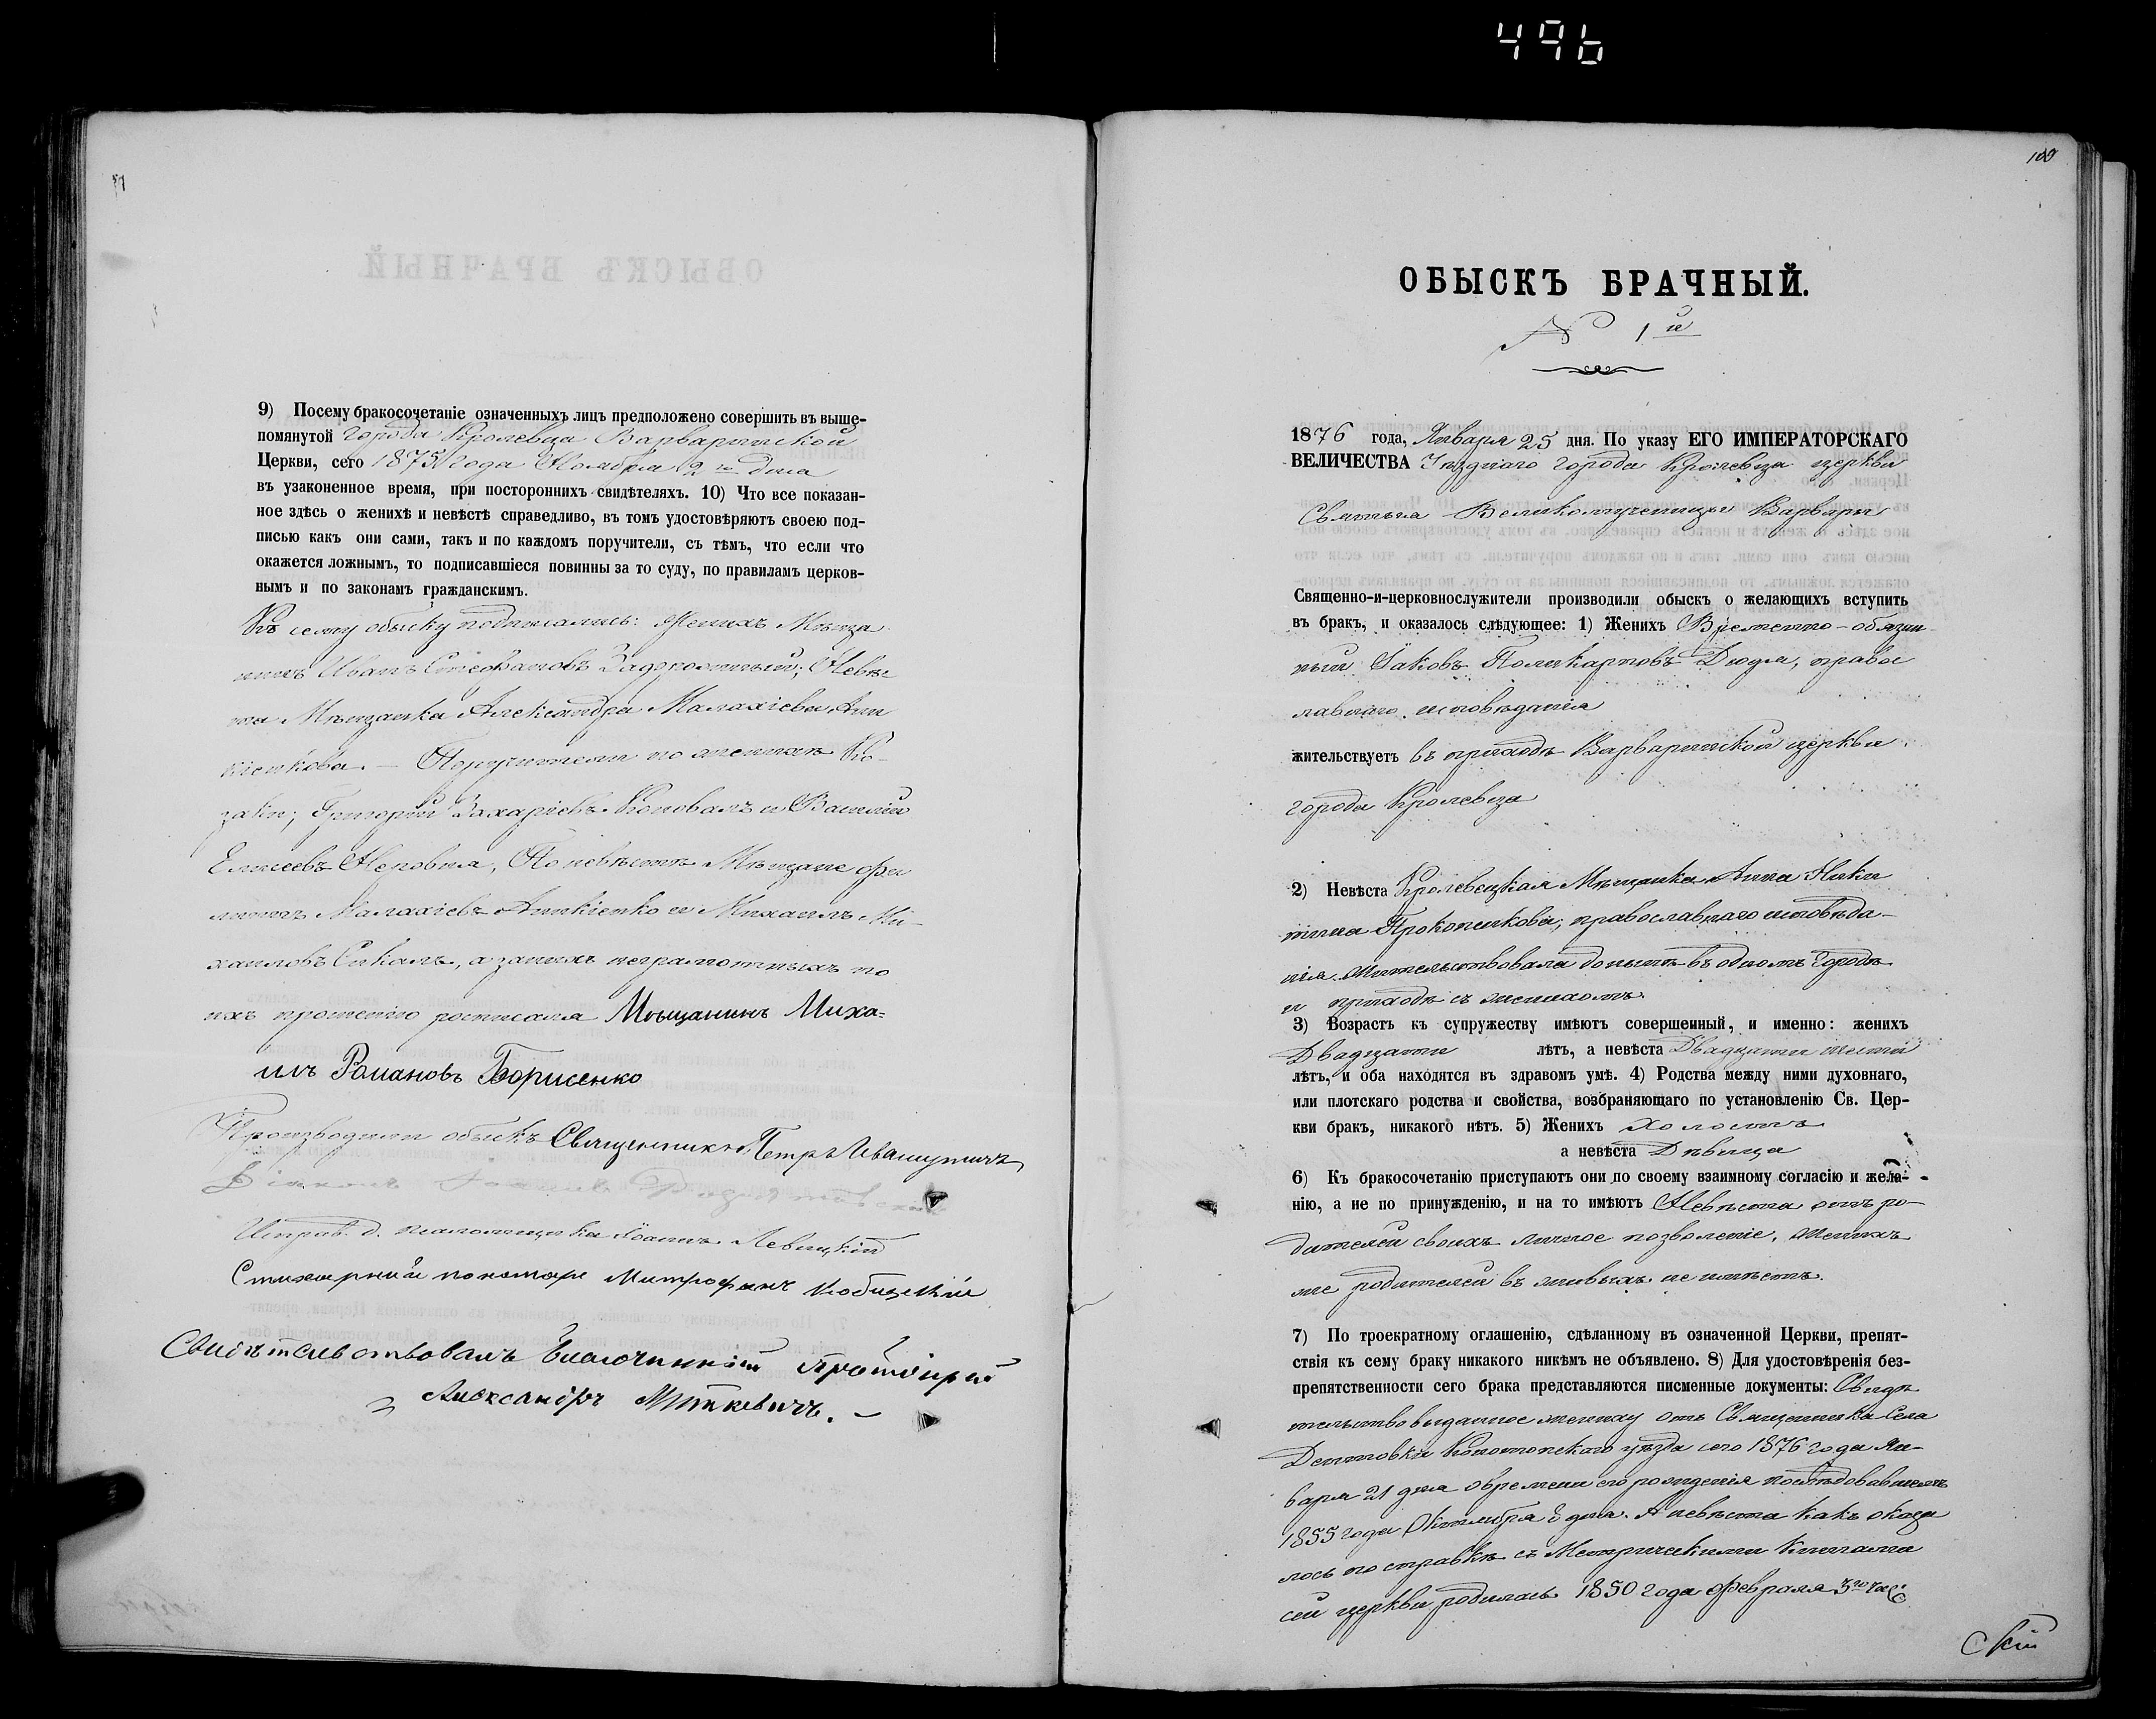 496
ОБЫСКЪ БРАЧНЫЙ
9) Посему бракосочетаніе означенныхъ лицъ предположено совершить въ выше-
помянутой города Кролевца Варваринской
Церкви, сего 1875 года Ноября 2го дня
въ узаконенное время, при постороннихъ свидѣтеляхъ. 10) Что все показан-
ное здѣсь о женихѣ и невѣстѣ справедливо, въ томъ удостовѣряютъ своею под-
писью какъ они сами, такъ и по каждомъ поручители, съ тѣмъ, что если что
окажется ложнымъ, то подписавшіеся повинны за то суду, по правиламъ церков-
нымъ и по законамъ гражданскимъ.
Къ сему обыску подписались: Женихъ Мѣща
нинъ Иванъ Стефановъ Задорожный; Невѣс
та Мѣщанка Александра Малахіева Ани
кіенкова. – Поручители по женихѣ Ко-
заки; Григорій Захаріевъ Коновалъ и Василій
Елисеевъ Неровня, По невѣстѣ Мѣщане Фи
липпъ Малахіевъ Аникіенко и Михаилъ Ми-
хаиловъ Сикалъ, а за нихъ неграмотныхъ по
ихъ прошенію росписался Мѣщанинъ Миха=
илъ Романовъ Борисенко
Производили обыскъ Священникъ Петръ Ивашутичъ
Діаконъ
Исправ. д. псаломщика Іоаннъ Левицкій
Стихарный пономарь Митрофанъ Кобицкій
Свидѣтельствовалъ Благочинный Протоіерей
Александръ Миткевичъ. –
100
ОБЫСКЪ БРАЧНЫЙ.
N 1й
1876 года, Января 25 дня. По указу ЕГО ИМПЕРАТОРСКАГО
ВЕЛИЧЕСТВА Уѣзднаго города Кролевца церкви
Святыя Великомученицы Варвары
Священно-и-церковнослужители производили обыскъ о желающихъ вступить
въ бракъ, и оказалось слѣдующее: 1) Женихъ Временно-обязан
ный Іаковъ Поликарповъ Дюдя, правос
лавнаго исповѣданія
жительствуетъ въ приходѣ Варваринской церкви
города Кролевца
2) Невѣста Кролевецкая Мѣщанка Анна Ники
тина Прокопенкова, православнаго исповѣда-
нія. Жительствовала донынѣ въ одномъ городѣ
и приходѣ съ женихомъ.
3) Возрастъ къ супружеству имѣютъ совершенный, и именно: женихъ
Двадцати лѣтъ, а невѣста Двадцати шести
лѣтъ, и оба находятся въ здравомъ умѣ. 4) Родства между ними духовнаго,
или плотскаго родства и свойства, возбраняющаго по установленію Св. Цер-
кви бракъ, никакого нѣтъ. 5) Женихъ холостъ
а невѣста Дѣвица
6) Къ бракосочетанію приступаютъ они по своему взаимному согласію и жела-
нію, а не по принужденію, и на то имѣютъ Невѣста отъ ро-
дителей своихъ личное позволеніе, женихъ
же родителей въ живыхъ не имѣетъ.
7) По троекратному оглашенію, сдѣланному въ означенной Церкви, препят-
ствія къ сему браку никакого никѣмъ не объявлено. 8) Для удостовѣренія без-
препятственности сего брака представляются писменные документы: Свидѣ
тельство выданное жениху отъ Священника Села
Дептовки Конотопскаго уѣзда сего 1876 года Ян-
варя 21 дня о времени его рожденія послѣдовавшемъ
1855 года Октября 8 дня. А невѣста какъ оказа
лось по справкѣ съ Метрическими книгами
сей церкви родилась 1850 года Февраля 3го
скій